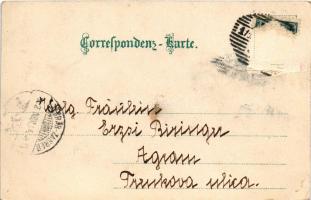 Correspondenz-Karte.
Wolg. Fräulein
Erzsi Biringer
Agram
Trenkova ulica.